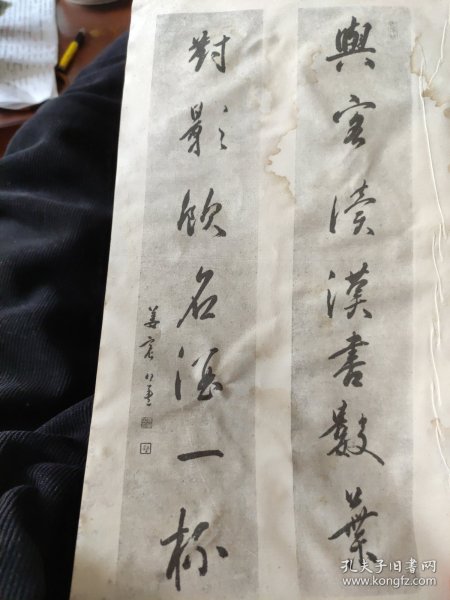 與客讀漢書數葉
對影飲名酒一杯
姜宸英
孔夫子旧书网
www.kongfz.com